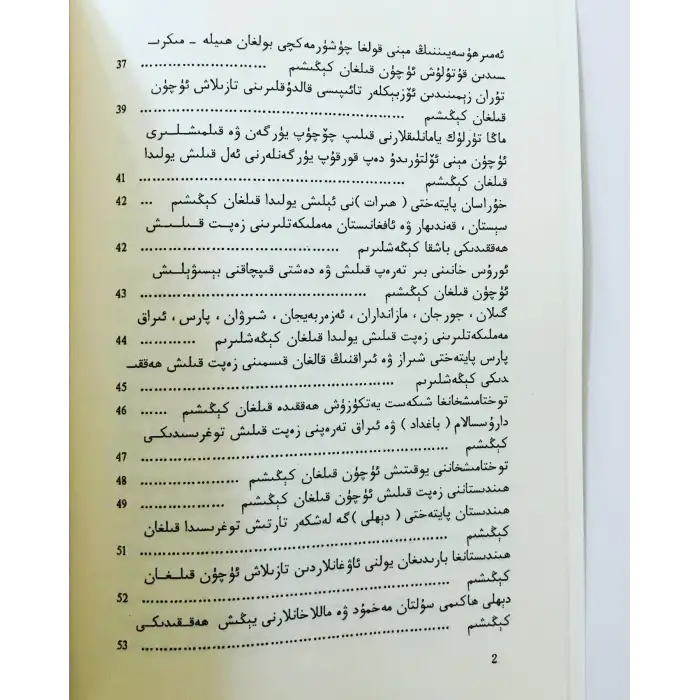 ئەمىر ھۈسەيىننىڭ مېنى قولغا چۈشۈرمەكچى بولغان ھىيلە ـ مىكرىـ
سىدىن قۇتۇلۇش ئۈچۈن قىلغان كېڭىشىم .......................... 37
تۇران زېمىنىدىن ئۆزبېكلەر تائىپىسى قالدۇقلىرىنى تازىلاش ئۈچۈن
قىلغان كېڭىشىم .......................................... 39
ماڭا تۈرلۈك يامانلىقلارنى قىلىپ چۆچۈپ يۈرگەن ۋە قىلمىشلىرى
ئۈچۈن مېنى ئۆلتۈرىدۇ دەپ قورقۇپ يۈرگەنلەرنى ئەل قىلىش يولىدا
قىلغان كېڭىشىم .......................................... 41
خۇراسان پايتەختى ( ھىرات )نى ئېلىش يولىدا قىلغان كېڭىشىم ... 42
سىستان ، قەندىھار ۋە ئافغانىستان مەملىكەتلىرىنى زەپت قىلىش
ھەققىدىكى باشقا كېڭەشلىرىم ................................ 42
ئورۇس خانىنى بىر تەرەپ قىلىش ۋە دەشتى قىپچاقنى بېسىۋېلىش
ئۈچۈن قىلغان كېڭىشىم .................................... 43
گىلان ، جورجان ، مازانداران ، ئەزەربەيجان ، شىرۋان ، پارس ، ئىراق
مەملىكەتلىرىنى زەپت قىلىش يولىدا قىلغان كېڭەشلىرىم ............ 44
پارس پايتەختى شىراز ۋە ئىراقنىڭ قالغان قىسمىنى زەپت قىلىش ھەققىـ
دىكى كېڭەشلىرىم .......................................... 45
توختامىشخانغا شىكەست يەتكۈزۈش ھەققىدە قىلغان كېڭىشىم ...... 46
دارۇسسالام ( باغداد ) ۋە ئىراق تەرەپنى زەپت قىلىش توغرىسىدىكى
كېڭىشىم ................................................ 47
توختامىشخاننى يوقىتىش ئۈچۈن قىلغان كېڭىشىم .................. 48
ھىندىستاننى زەپت قىلىش ئۈچۈن قىلغان كېڭىشىم ................ 49
ھىندىستان پايتەختى ( دېھلى )گە لەشكەر تارتىش توغرىسىدا قىلغان
كېڭىشىم ................................................ 51
ھىندىستانغا بارىدىغان يولنى ئاۋغانلاردىن تازىلاش ئۈچۈن قىلغان
كېڭىشىم ................................................ 52
دېھلى ھاكىمى سۇلتان مەخمۇد ۋە ماللاخانلارنى يېڭىش ھەققىدىكى
كېڭىشىم ................................................ 53
2